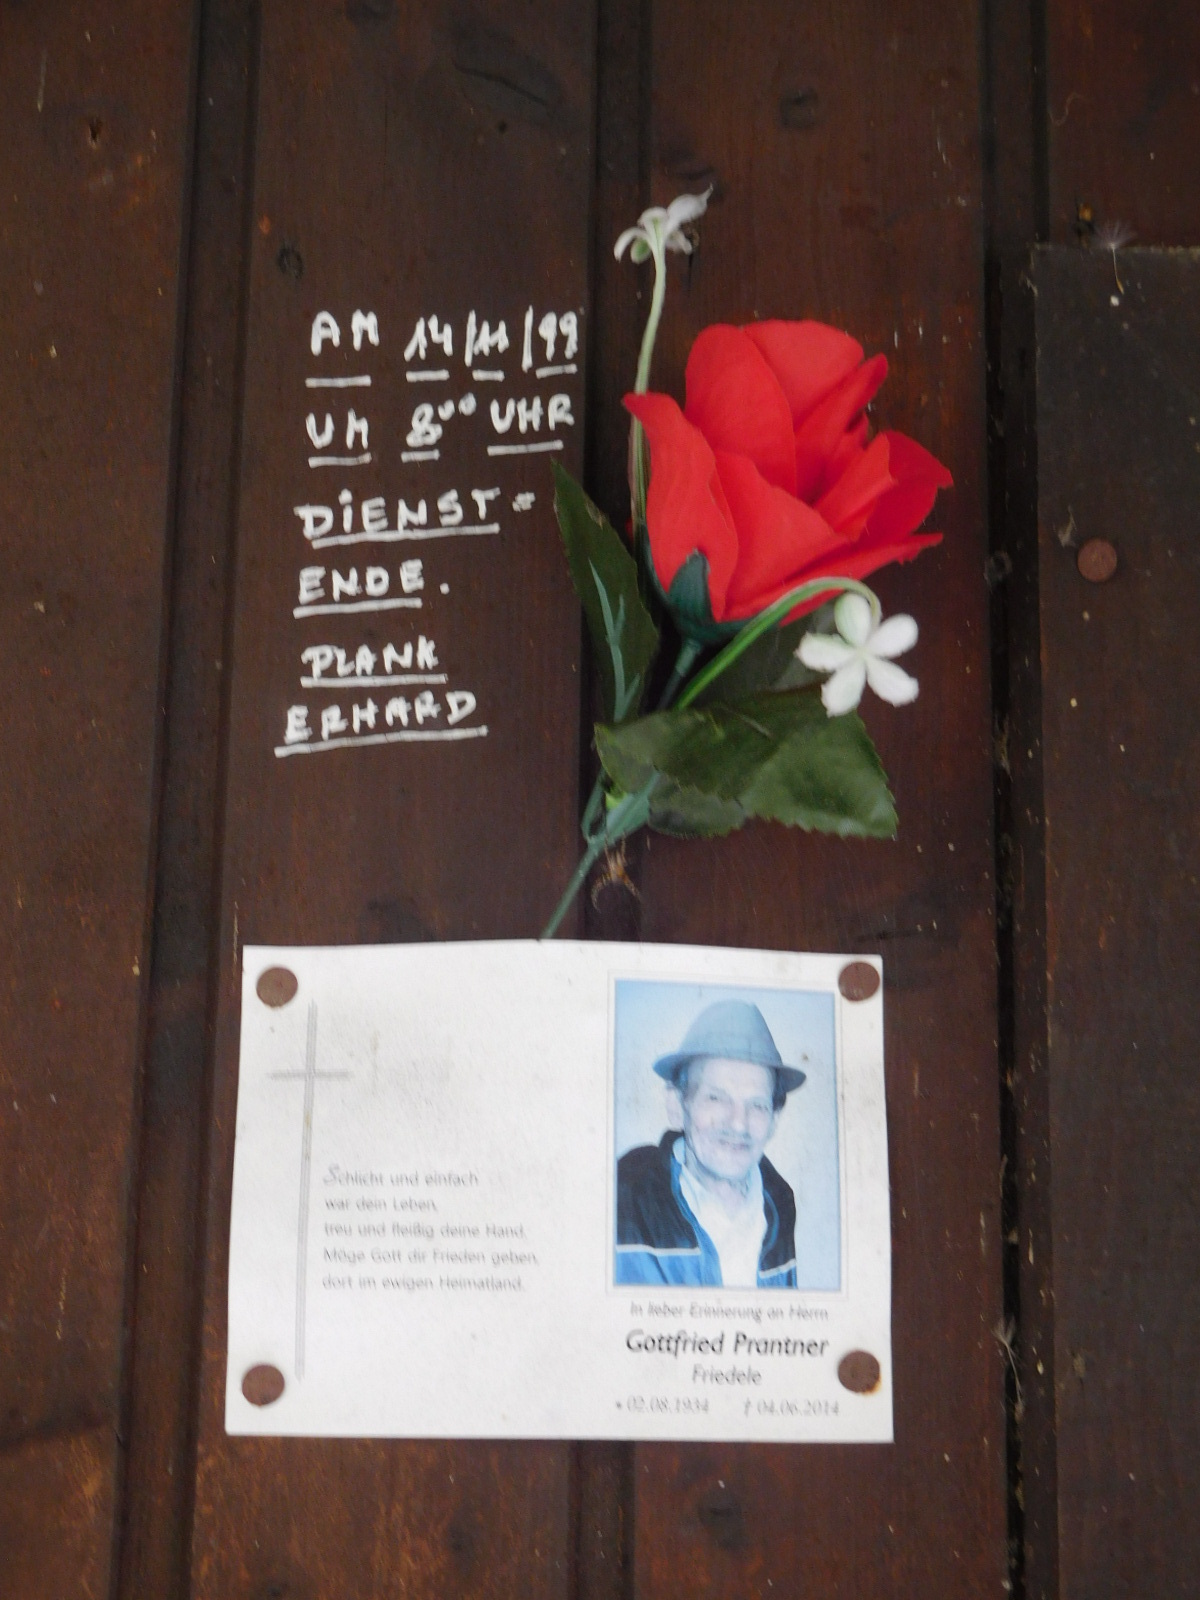 AM 14/11/99
UM 8⁰⁰ UHR
DiENST=
ENDE.
PLANK
ERHARD
Schlicht und einfach
war dein Leben,
treu und fleißig deine Hand.
Möge Gott dir Frieden geben,
dort im ewigen Heimatland.
In lieber Erinnerung an Herrn
Gottfried Prantner
Friedele
* 02.08.1934 † 04.06.2014